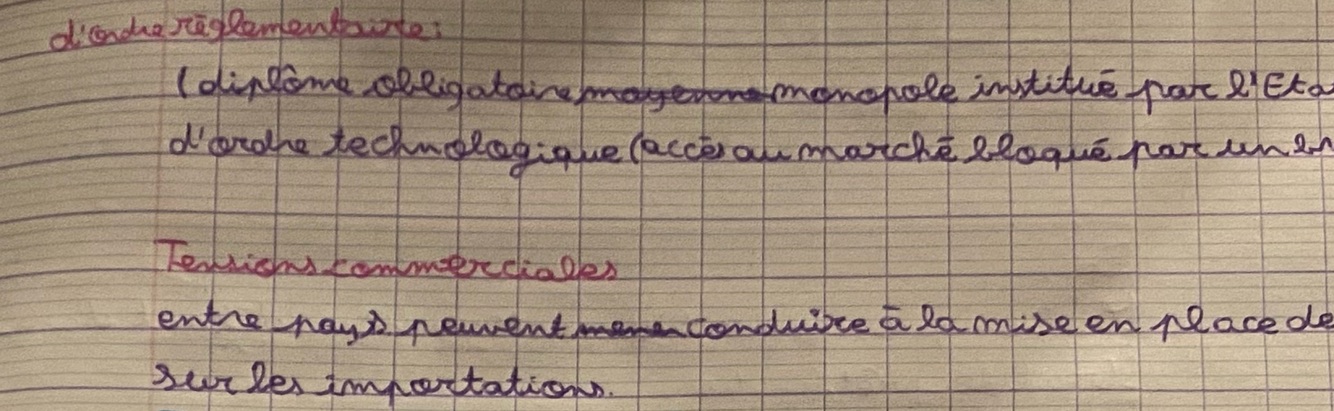 d'ordre réglementaire:
(diplôme obligatoire monopole institué par l'Eta
d'ordre technologique (accès au marché bloqué par un
Tensions commerciales
entre pays peuvent conduire à la mise en place de
sur les importations.